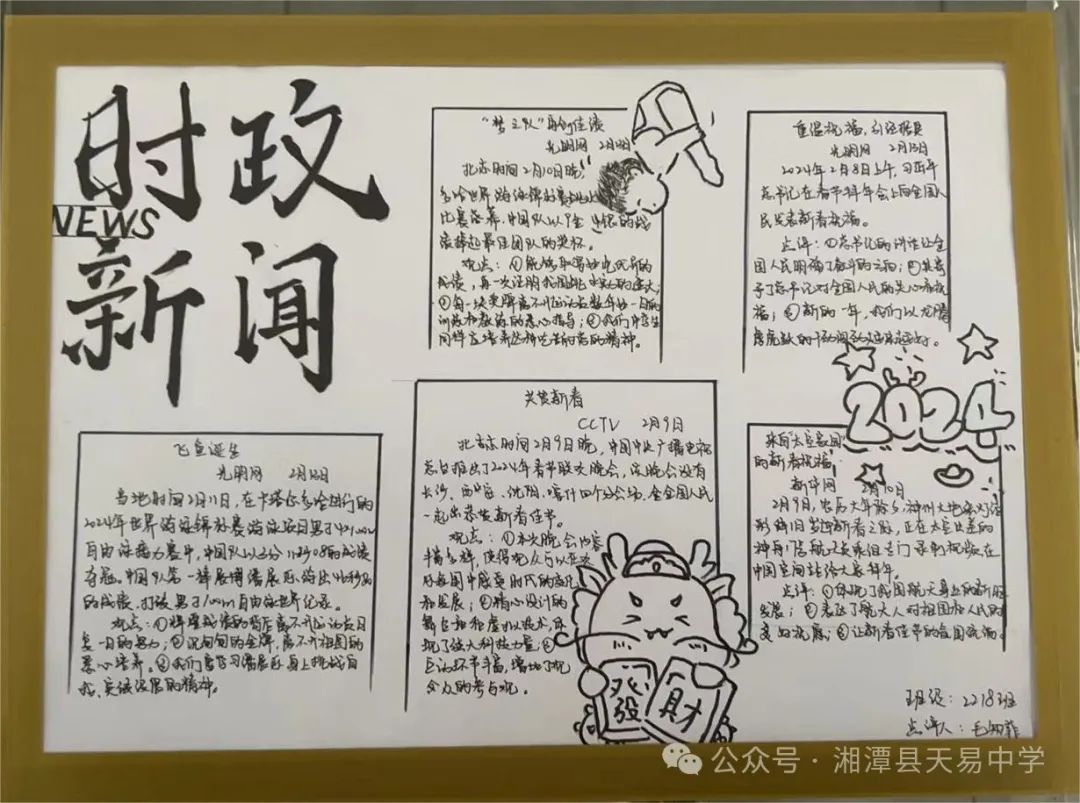 时政
NEWS
新闻
“梦之队”再创佳绩
光明网 2月11日
北京时间2月10日晚，
比赛落幕，中国队以9金
最佳团队的奖杯。
观点：①能够取得如此优异的
成绩，再一次证明我国跳水实力的强大；
②每一块奖牌离不开运动员数年如一日的
训练和教练的悉心指导；③我们中学生
同样应培养这种吃苦耐劳的精神。
重温祝福，
光明网 2月13日
2024年2月8日上午，习近平
总书记在春节团拜会上向全国人
民发表新春祝福。
点评：①总书记的讲话让全
国人民明确了奋斗的方向；②其寄
予了总书记对全国人民的关心和祝
福；③新的一年，我们以龙腾
虎跃的
2024
飞鱼诞生
光明网 2月12日
当地时间2月11日，在卡塔尔多哈进行的
2024年世界游泳锦标赛游泳项目男子4×100m
自由泳接力赛中，中国队以3分11秒08的成绩
夺冠。中国队第一棒展博潘展乐游出46秒80
的成绩，打破男子100m自由泳世界纪录。
观点：①辉煌成绩的背后离不开运动员日
复一日的努力；②沉甸甸的金牌，离不开祖国的
悉心培养。③我们要学习潘展乐身上挑战自
我、突破极限的精神。
共贺新春
CCTV 2月9日
北京时间2月9日晚，中国中央广播电视
总台推出了2024年春节联欢晚会，
长沙、西安、沈阳、喀什四个分会场，全全国人民
一起
观点：①本次晚会内容
丰富多样，使得观众
和发展；②精心设计的
舞台和和虚拟技术，体
现了强大科技力量；③
互动环节丰富，增加了观
众的参与观。
發
財
来自“太空家园”
的新春祝福
新华网 2月10日
2月9日，农历大年除夕，神州大地
辞旧岁迎新春之际，正在太空出差的
神舟十七航天员乘组专门录制视频在
中国空间站给大家拜年。
点评：①体现了我国航天事业的新
发展；②表达了航天人对祖国和人民的
③让新春佳节的氛围
班级：2218班
点评人：毛
公众号·湘潭县天易中学